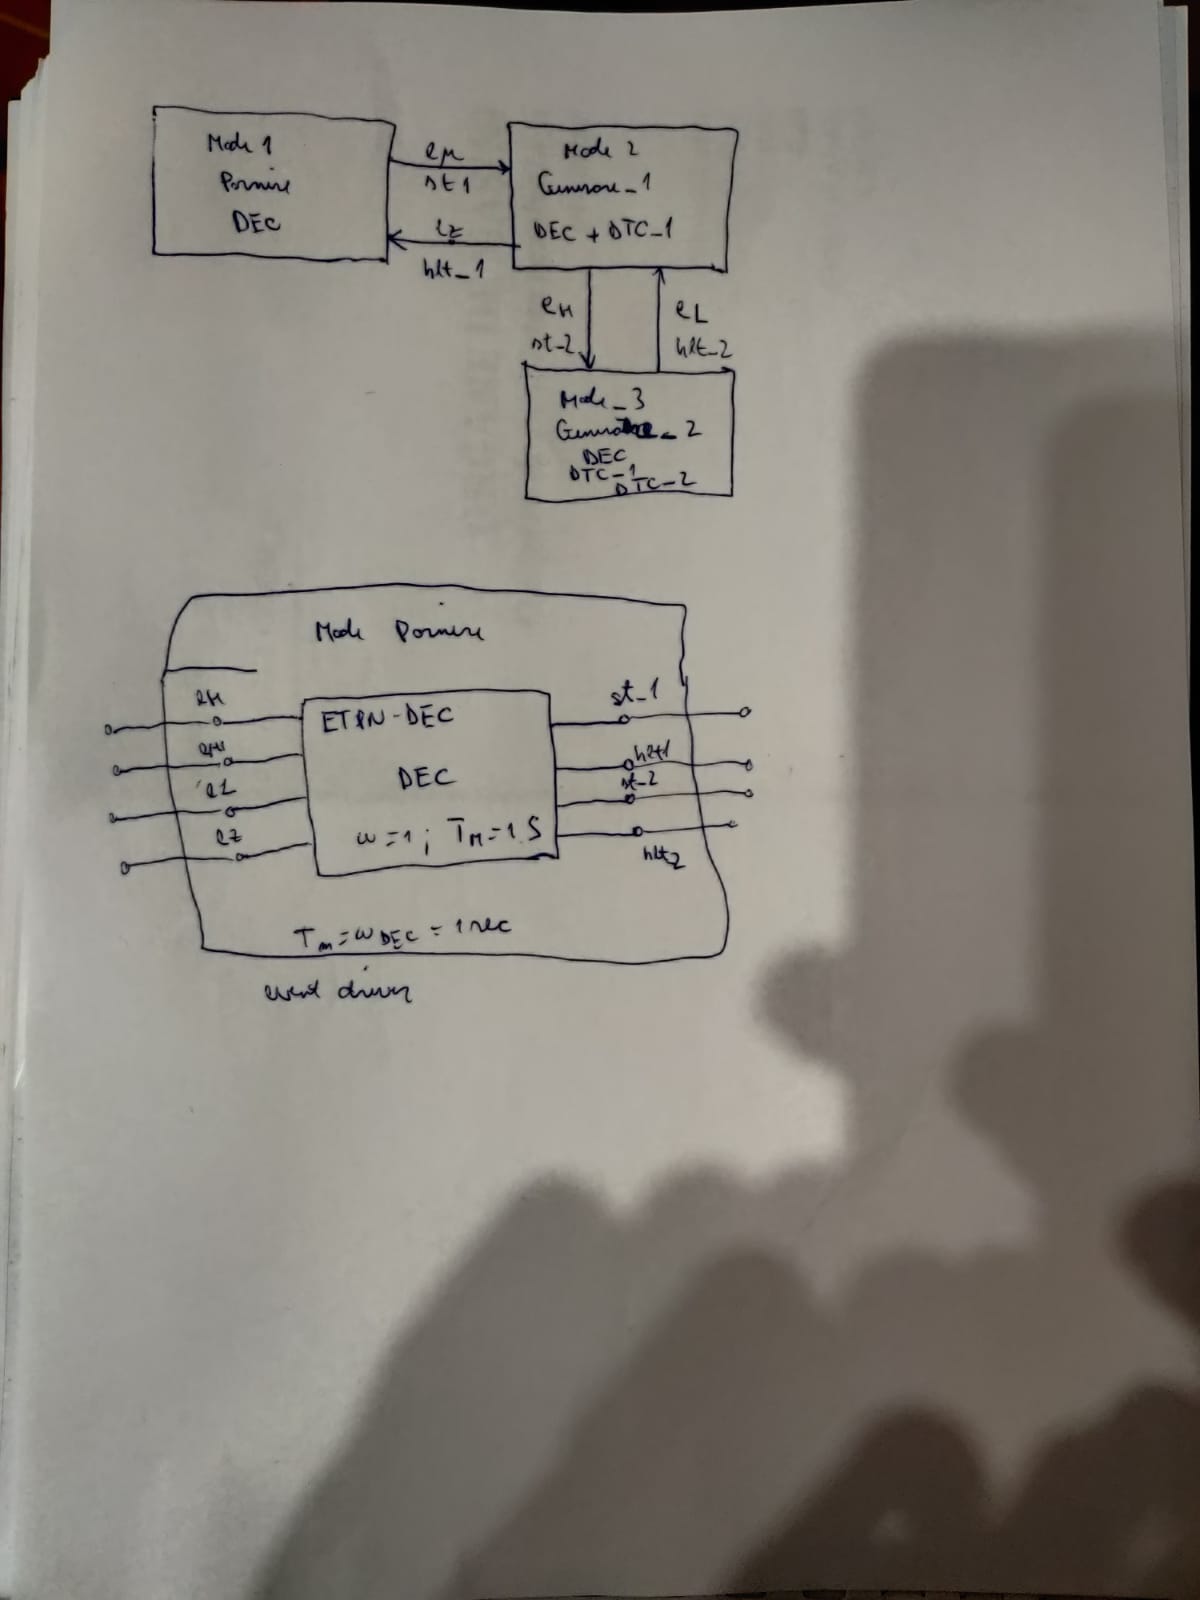 Mode 1
Pornire
DEC
eM
st1
ez
hlt_1
Mode 2
Generare_1
DEC + DTC_1
eH
st_2
eL
hlt_2
Mode_3
Generare_2
DEC
DTC_1
DTC_2
Mode Pornire
eH
eM
eL
ez
ETPN-DEC
DEC
w=1; TM=1 S
st_1
hlt1
st_2
hlt2
Tm = wDEC = 1 sec
event driven